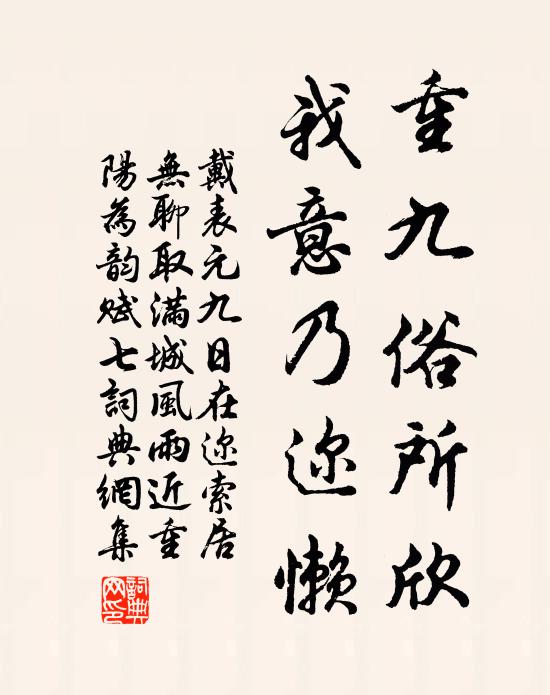 重九俗所欣
我意乃迩懒
戴表元九日在迩索居
無聊取滿城風雨近重
陽為韵赋七詞典網集
詞典网印